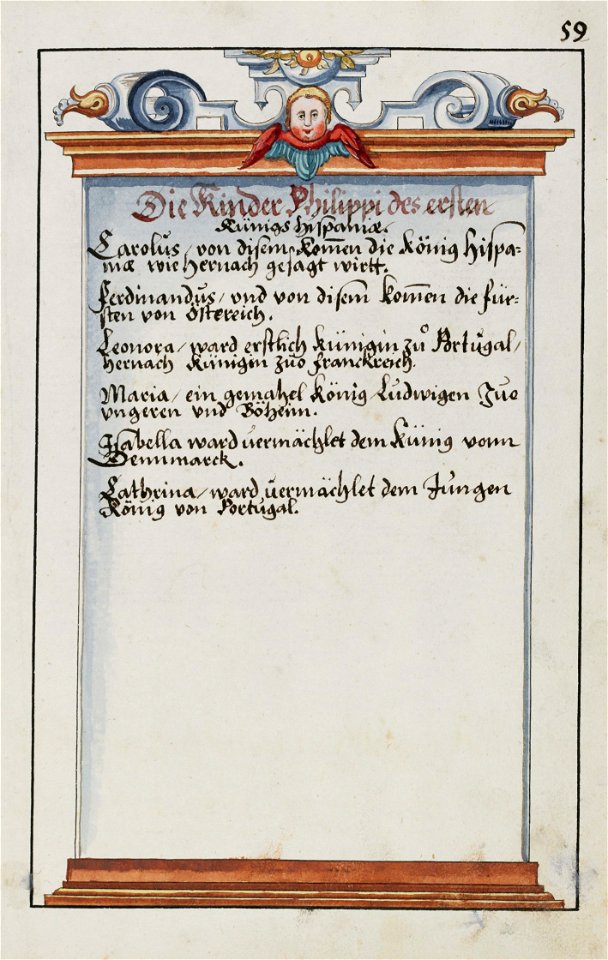 59
Die Kinder Philippi des ersten
Künigs Hispaniæ.
Carolus / von disem kom̃en die König Hispa-
niæ wie hernach gesagt wirtt.
Ferdinandus / vnd von disem komen die Für-
sten von Östereich.
Leonora / ward erstlich Künigin zů Portugal /
hernach Künigin zuo Franckreich.
Maria / ein gemahel König Ludwigen Zuo
vngeren vnd Böheim.
Isabella ward vermächlet dem Künig vonn
Dennmarck.
Cathrina / ward vermächlet dem Jungen
König von Portugal.